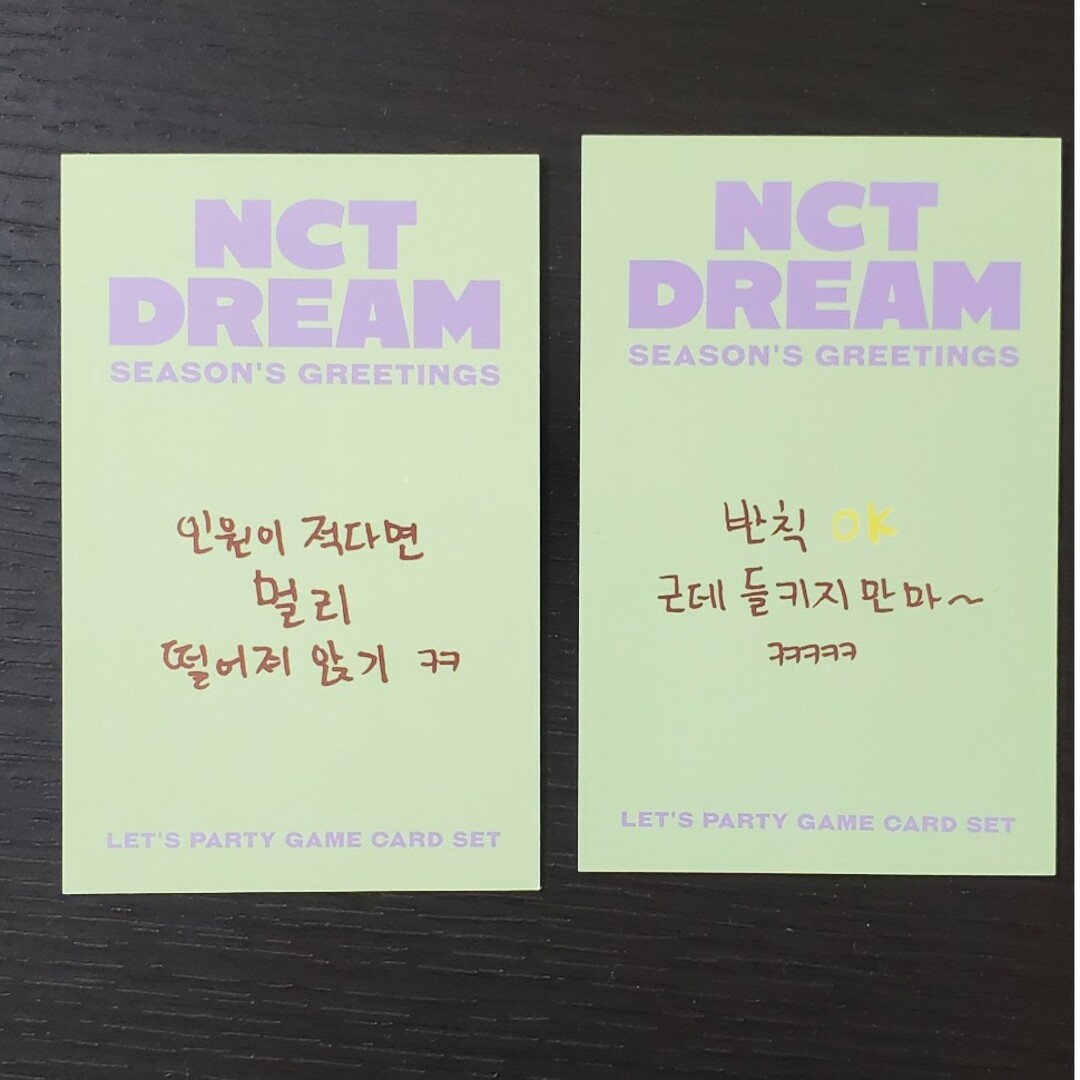 NCT
DREAM
SEASON'S GREETINGS
인원이 적다면
멀리
떨어져 앉기 ㅋㅋ
LET'S PARTY GAME CARD SET
NCT
DREAM
SEASON'S GREETINGS
반칙 OK
근데 들키지만 마~
ㅋㅋㅋㅋㅋ
LET'S PARTY GAME CARD SET